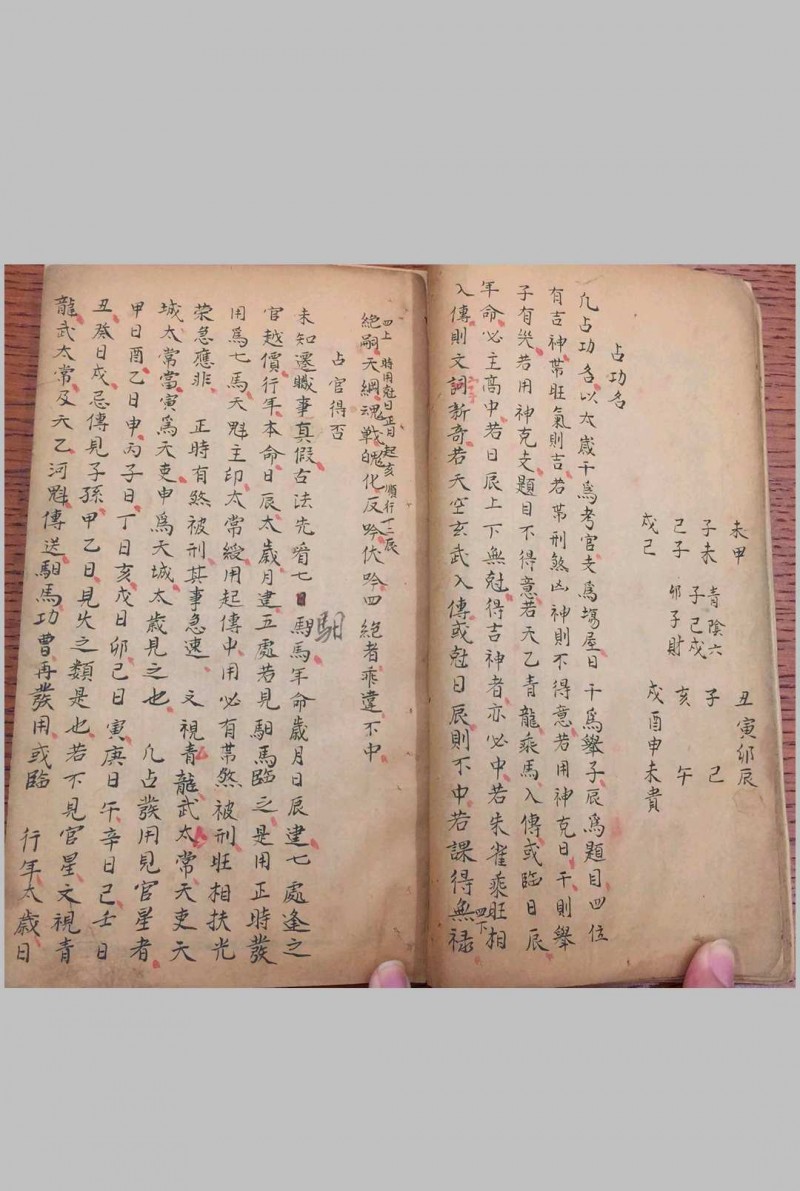 未甲
子未
己子
戌己
青陰六
子己戌
卯子財
丑寅卯辰
子 己
亥 午
戌酉申未貴
占功名
凢占功名以太歲干為考官支為塲屋日干為舉子辰為題目四位
有吉神帶旺氣則吉若帶刑煞凶神則不得意若用神克日干則舉
子有災若用神克支題目不得意若天乙青龍乘馬入傳或臨日辰
年命必主高中若日辰上下無尅得吉神者亦必中若朱雀乘旺相
入傳則文詞新奇若天空玄武入傳或尅日辰則不中若課得無祿四下
絕嗣四上天綱時用尅日正月起亥順行十二辰魂戰魄化反吟伏吟四絕者乖違不中
占官得否
未知遷職事真假占法先看七日馹馬年命歲月日辰建七處逢之
馹
官越價行年本命日辰太歲月建五處若見馹馬臨之是用正時發
用為七馬天魁主印太常綬用起傳中用必有帶煞被刑旺相扶光
榮急應非 正時有煞被刑其事急速 又視青龍武太常天吏天
城太常當寅為天吏申為天城太歲見之也 凢占發用見官星者
甲日酉乙日申丙子日丁日亥戊日卯己日寅庚日午辛日己壬日
丑癸日戌忌傳見子孫甲乙日見火之類是也若不見官星又視青
龍武太常及天乙河魁傳送馹馬功曹再發用或臨 行年太歲日